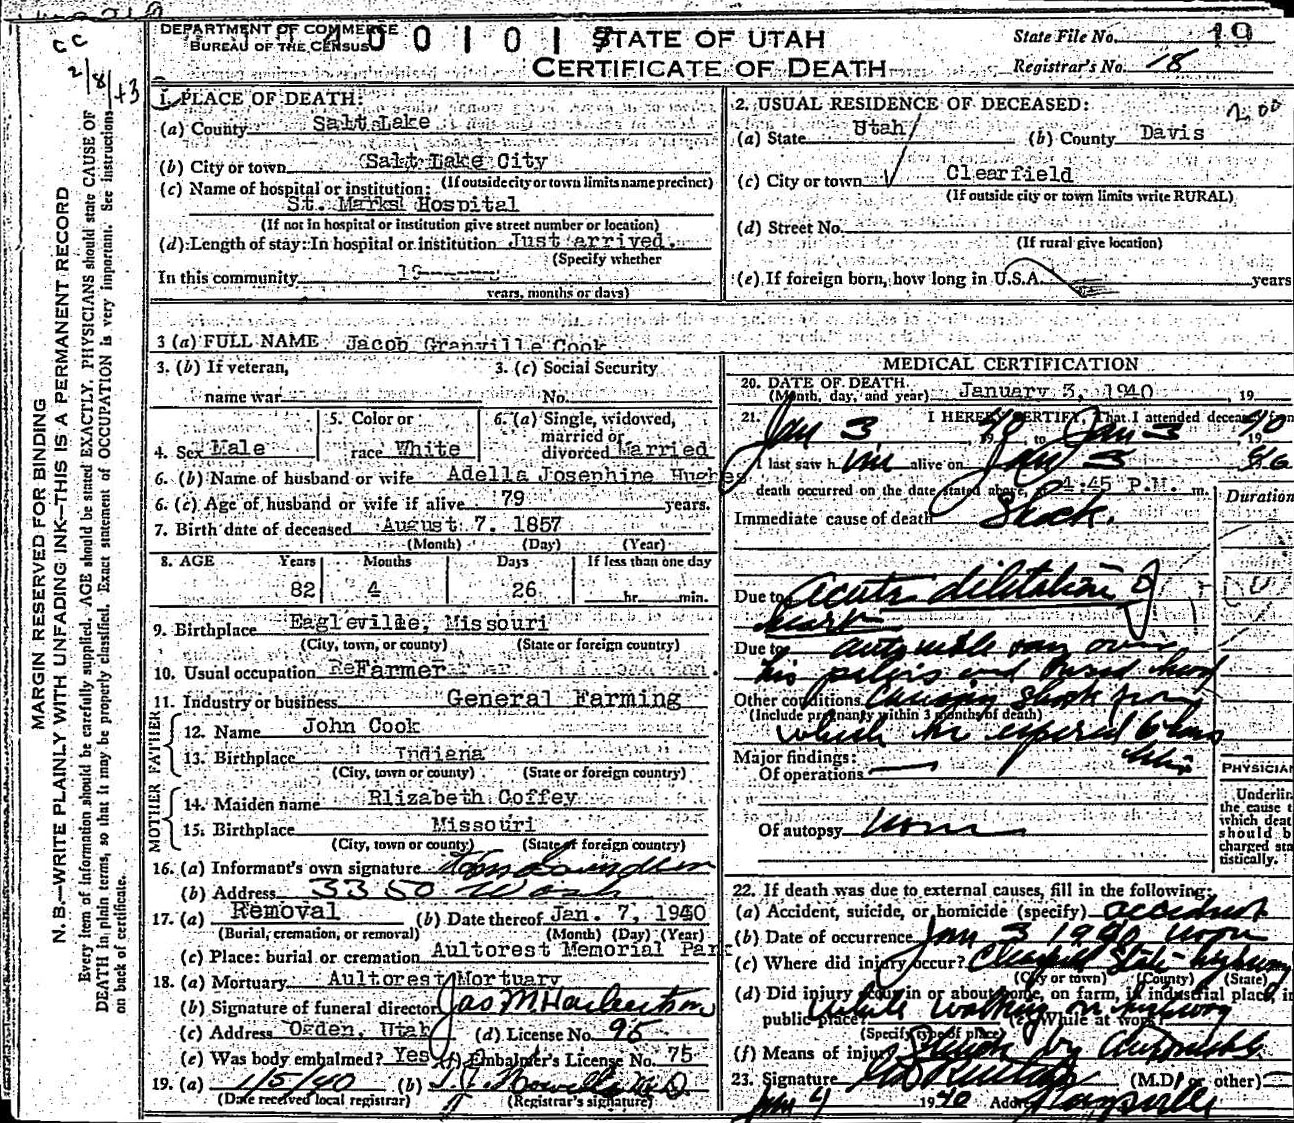 DEPARTMENT OF COMMERCE
BUREAU OF THE CENSUS
STATE OF UTAH
CERTIFICATE OF DEATH
State File No. 19
Registrar's No. 18
CC
2/8/43
MARGIN RESERVED FOR BINDING
N. B.—WRITE PLAINLY WITH UNFADING INK—THIS IS A PERMANENT RECORD
Every item of information should be carefully supplied. AGE should be stated EXACTLY. PHYSICIANS should state CAUSE OF
DEATH in plain terms, so that it may be properly classified. Exact statement of OCCUPATION is very important. See instructions
on back of certificate.
1. PLACE OF DEATH:
(a) County Salt Lake
(b) City or town Salt Lake City
(If outside city or town limits name precinct)
(c) Name of hospital or institution:
St. Marks Hospital
(If not in hospital or institution give street number or location)
(d) Length of stay: In hospital or institution Just arrived.
(Specify whether
In this community
years, months or days)
2. USUAL RESIDENCE OF DECEASED:
(a) State Utah (b) County Davis
(c) City or town Clearfield
(If outside city or town limits write RURAL)
(d) Street No.
(If rural give location)
(e) If foreign born, how long in U.S.A. years
3 (a) FULL NAME Jacob Granville Cook
3. (b) If veteran,
name war
3. (c) Social Security
No.
4. Sex Male
5. Color or
race White
6. (a) Single, widowed,
married or
divorced Married
6. (b) Name of husband or wife Adella Josephine Hughes
6. (c) Age of husband or wife if alive 79 years.
7. Birth date of deceased August 7, 1857
(Month) (Day) (Year)
8. AGE Years Months Days If less than one day
82 4 26 hr. min.
9. Birthplace Eagleville, Missouri
(City, town, or county) (State or foreign country)
10. Usual occupation ReFarmer
11. Industry or business General Farming
FATHER
12. Name John Cook
13. Birthplace Indiana
(City, town or county) (State or foreign country)
MOTHER
14. Maiden name Rlizabeth Coffey
15. Birthplace Missouri
(City, town or county) (State of foreign country)
16. (a) Informant's own signature
(b) Address 3350 Wash
17. (a) Removal (b) Date thereof Jan. 7, 1940
(Burial, cremation, or removal) (Month) (Day) (Year)
(c) Place: burial or cremation Aultorest Memorial Park
18. (a) Mortuary Aultorest Mortuary
(b) Signature of funeral director
(c) Address Orden, Utah (d) License No. 95
(e) Was body embalmed? Yes (f) Embalmer's License No. 75
19. (a) 1/5/40 (b)
(Date received local registrar) (Registrar's signature)
MEDICAL CERTIFICATION
20. DATE OF DEATH
(Month, day, and year) January 3, 1940, 19
21. I HEREBY CERTIFY, That I attended deceased from
Jan 3, 1940, to Jan 3 1940
I last saw him alive on Jan 3 40
death occurred on the date stated above, at 4:45 P.M. m.
Duration
Immediate cause of death Shock.
Due to acute dilitation of
heart
Due to automobile ran over
his pelvis and
Other conditions causing shock from
(Include pregnancy within 3 months of death)
which he expired 6 hrs
later
Major findings:
Of operations
Of autopsy none
PHYSICIAN
Underlin
the cause t
which deat
should b
charged sta
tistically.
22. If death was due to external causes, fill in the following:
(a) Accident, suicide, or homicide (specify) accident
(b) Date of occurrence Jan 3 1940 noon
(c) Where did injury occur? Clearfield State highway
(City or town) (County) (State)
(d) Did injury occur in or about home, on farm, in industrial place, in
public place? while walking on highway
(Specify type of place) (e) While at work?
(f) Means of injury Struck by Automobile
23. Signature (M.D. or other)
Jan 4 1940 Address Kaysville